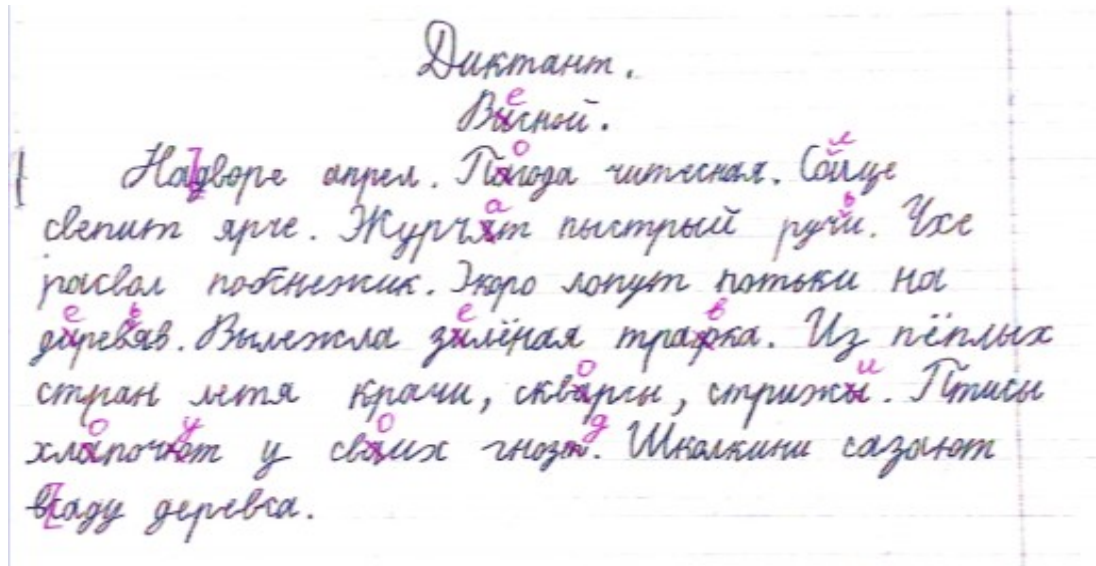 Диктант.
Висной.
Надворе апрел. Пагода читесная. Соице
свепит ярче. Журчят пыстрый ручи. Уже
расвол побснежик. Экоро лопут потьки на
диревяв. Вылежла зилёная трафка. Из пёплых
стран летя крачи, скварсы, стрижы. Птисы
хлапочют у сваих гнозт. Школкини сазают
всаду деревса.